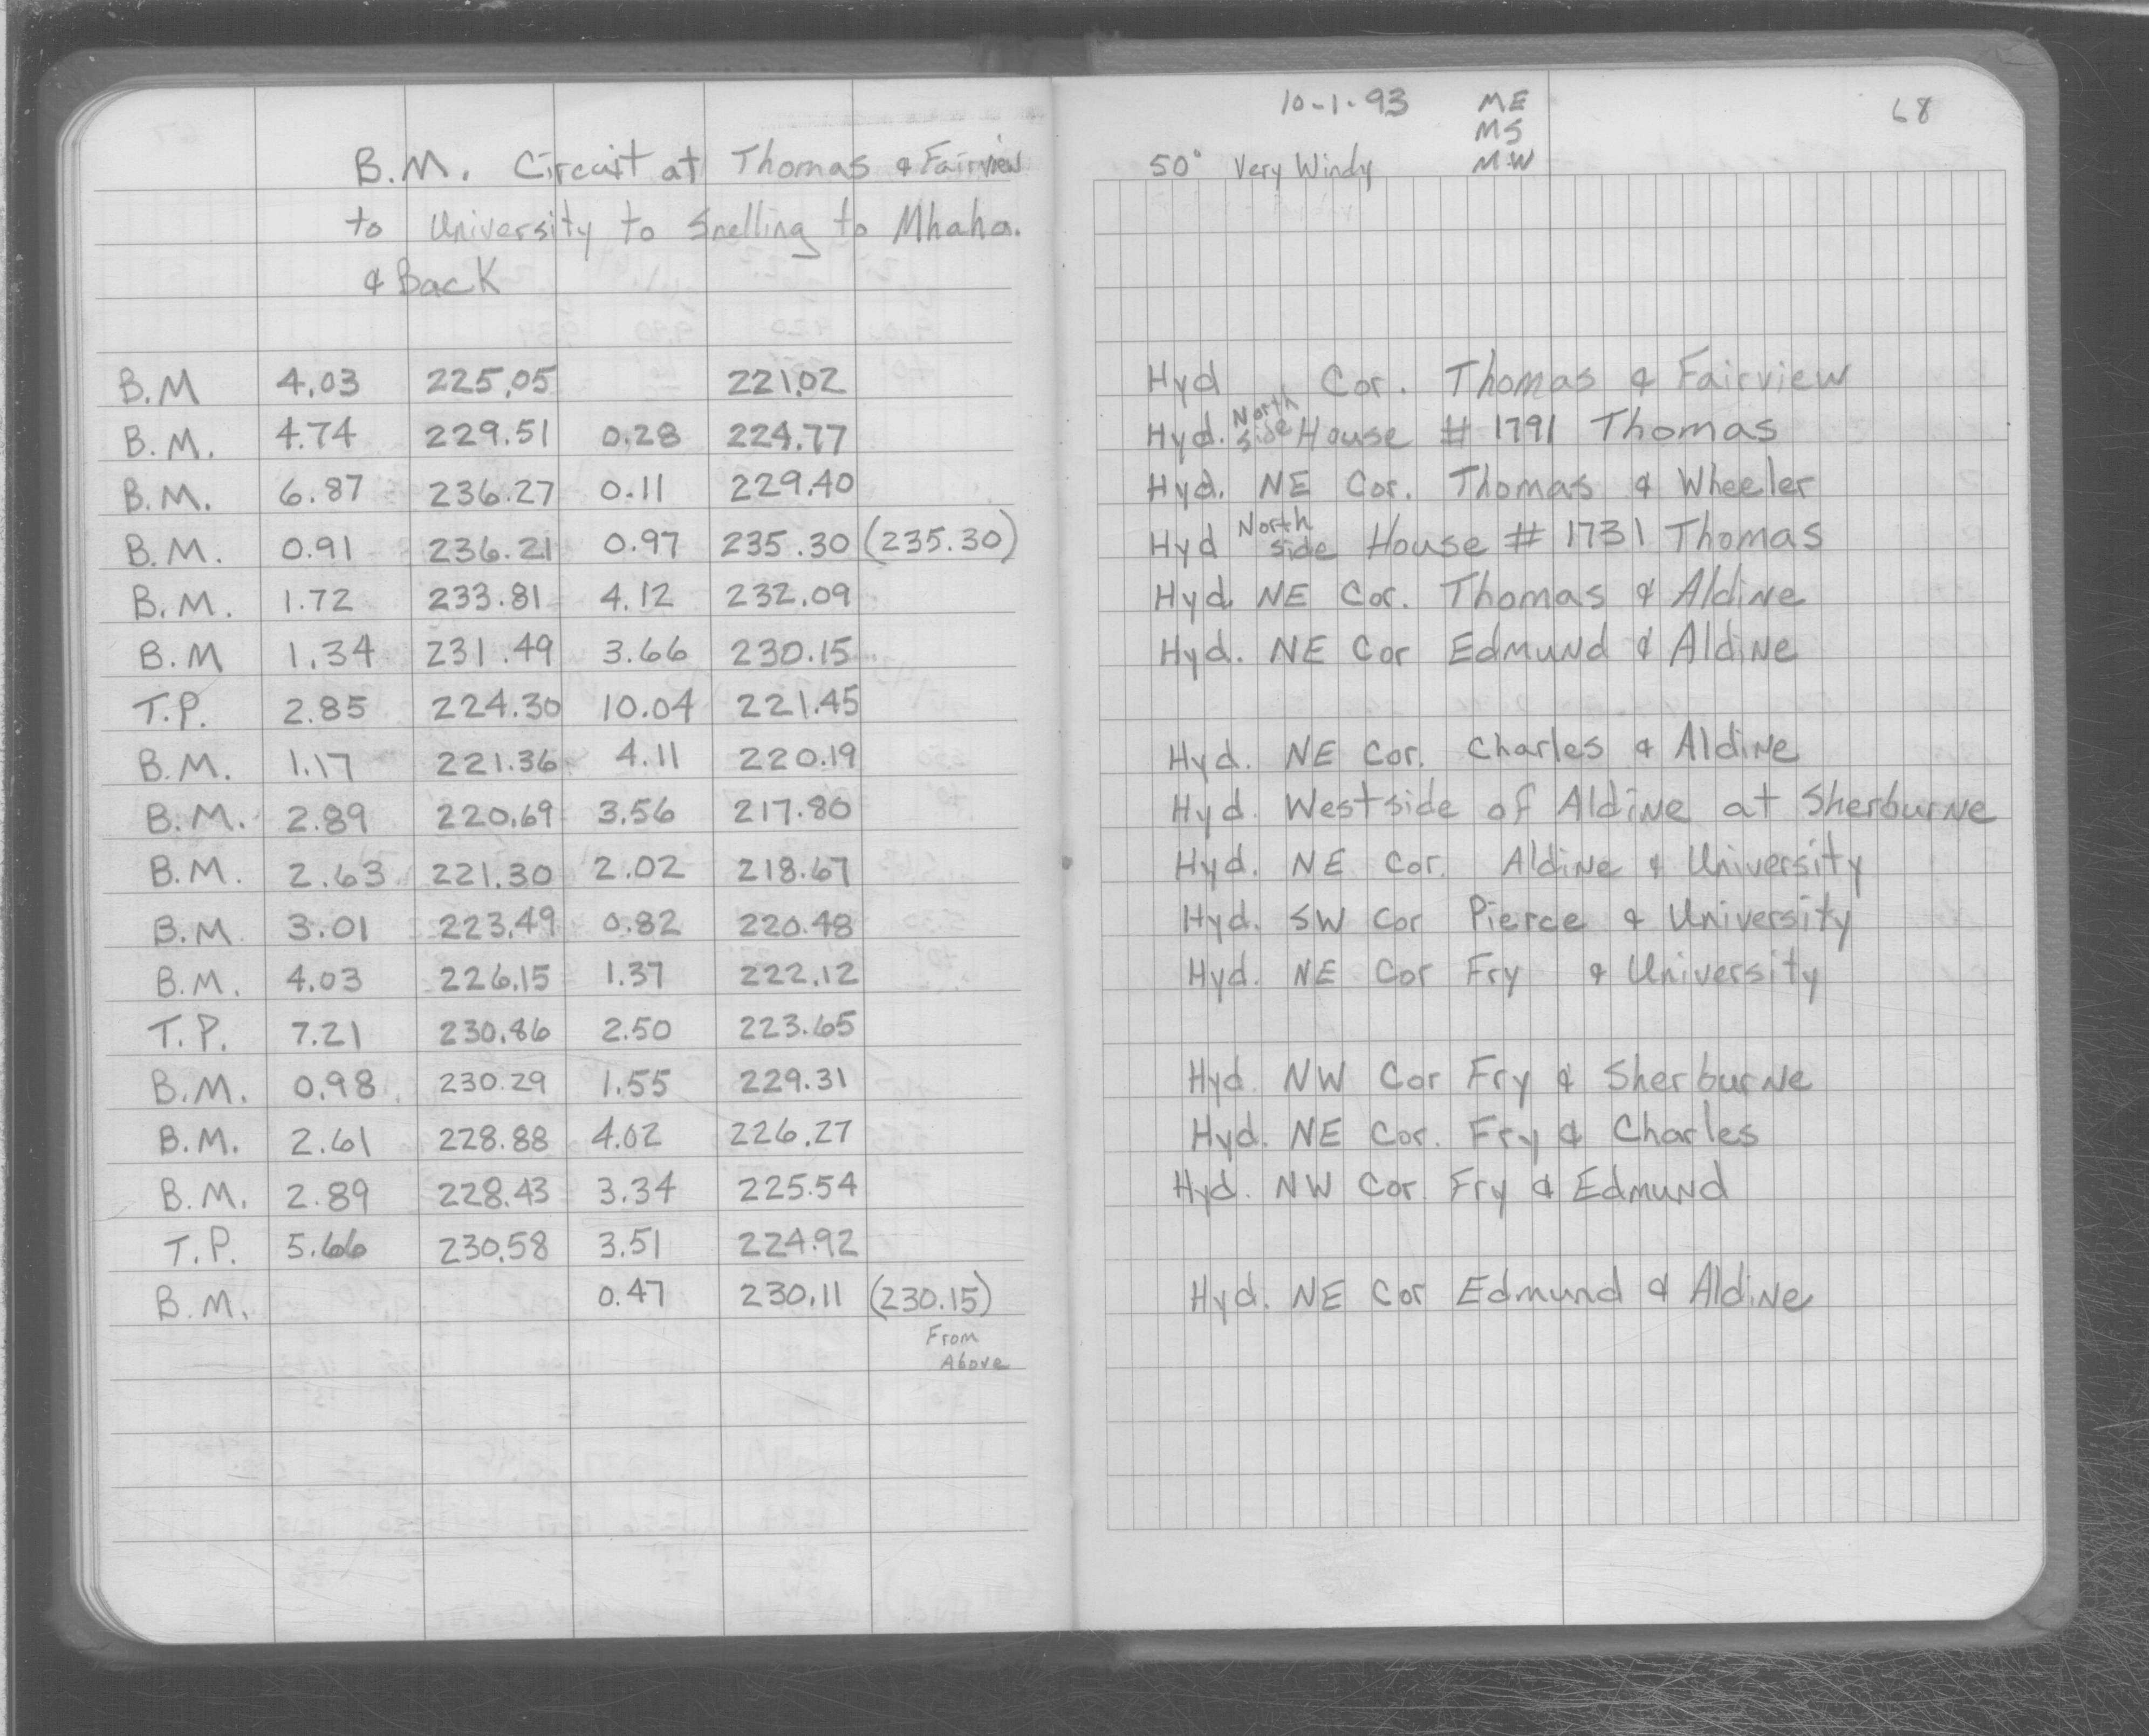 B.M. Circuit at Thomas & Fairview
to University to Snelling to Mhaha.
& Back
B.M 4.03 225.05 221.02
B.M. 4.74 229.51 0.28 224.77
B.M. 6.87 236.27 0.11 229.40
B.M. 0.91 236.21 0.97 235.30 (235.30)
B.M. 1.72 233.81 4.12 232.09
B.M 1.34 231.49 3.66 230.15
T.P. 2.85 224.30 10.04 221.45
B.M. 1.17 221.36 4.11 220.19
B.M. 2.89 220.69 3.56 217.80
B.M. 2.63 221.30 2.02 218.67
B.M. 3.01 223.49 0.82 220.48
B.M. 4.03 226.15 1.37 222.12
T.P. 7.21 230.86 2.50 223.65
B.M. 0.98 230.29 1.55 229.31
B.M. 2.61 228.88 4.02 226.27
B.M. 2.89 228.43 3.34 225.54
T.P. 5.66 230.58 3.51 224.92
B.M. 0.47 230.11 (230.15)
From
Above
10-1-93 ME 68
MS
50° Very Windy MW
Hyd Cor. Thomas & Fairview
Hyd. North side House # 1791 Thomas
Hyd. NE Cor. Thomas & Wheeler
Hyd North side House # 1731 Thomas
Hyd. NE Cor. Thomas & Aldine
Hyd. NE Cor Edmund & Aldine
Hyd. NE Cor. Charles & Aldine
Hyd. Westside of Aldine at Sherburne
Hyd. NE Cor. Aldine & University
Hyd. SW Cor Pierce & University
Hyd. NE Cor Fry & University
Hyd. NW Cor Fry & Sherburne
Hyd. NE Cor. Fry & Charles
Hyd. NW Cor. Fry & Edmund
Hyd. NE Cor Edmund & Aldine